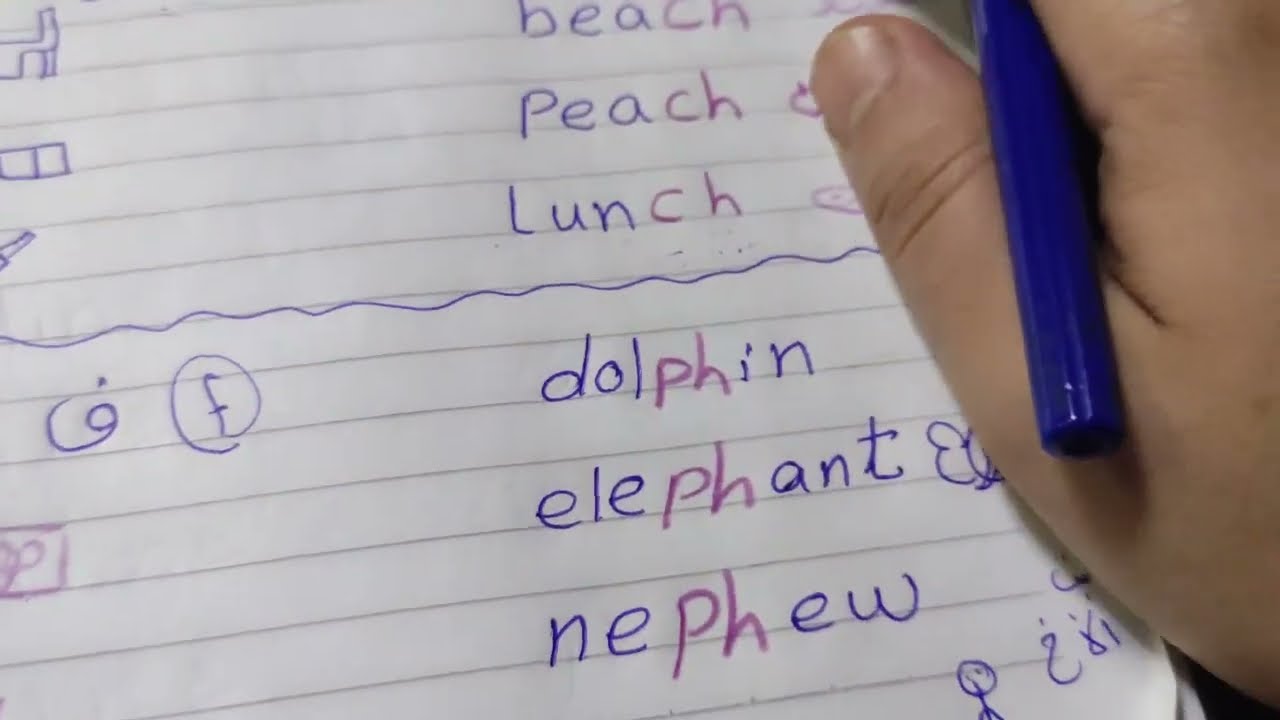 beach
Peach
Lunch
ف f dolphin
elephant
nephew